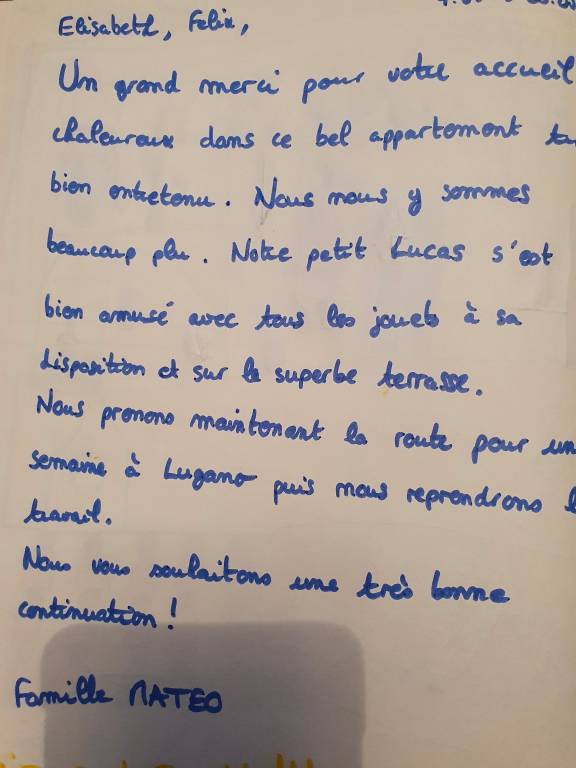 Elisabeth, Felix,
Un grand merci pour votre accueil
chaleureux dans ce bel appartement
bien entretenu. Nous nous y sommes
beaucoup plu. Notre petit Lucas s'est
bien amusé avec tous les jouets à sa
disposition et sur la superbe terrasse.
Nous prenons maintenant la route pour un
semaine à Lugano puis nous reprendrons
travail.
Nous vous souhaitons une très bonne
continuation !
Famille MATEO